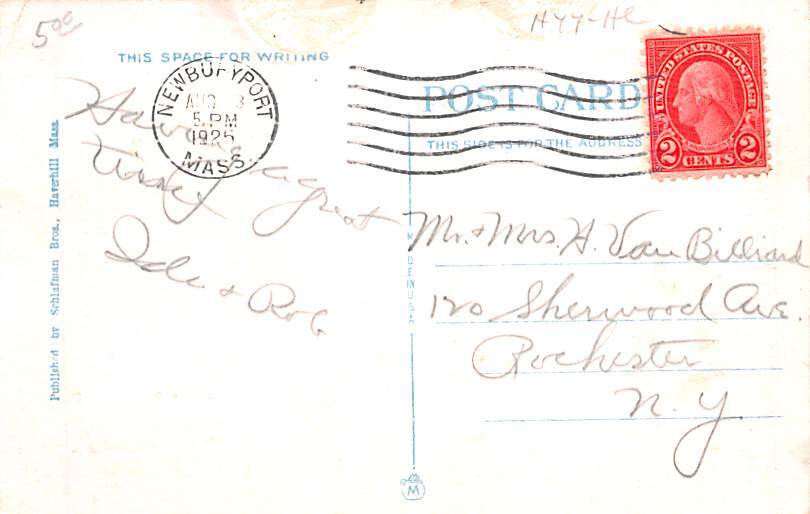 5.00
THIS SPACE FOR WRITING
NEWBURYPORT
AUG 3
5 PM
1925
MASS
POST CARD
THIS SIDE IS FOR THE ADDRESS
UNITED STATES POSTAGE
2 CENTS 2
Having a great
time
Ide & Rob
Mr. & Mrs. H. Van Billiard
120 Sherwood Ave.
Rochester
N. Y.
Published by Schlafman Bros., Haverhill Mass.
MADE IN U.S.A.
M